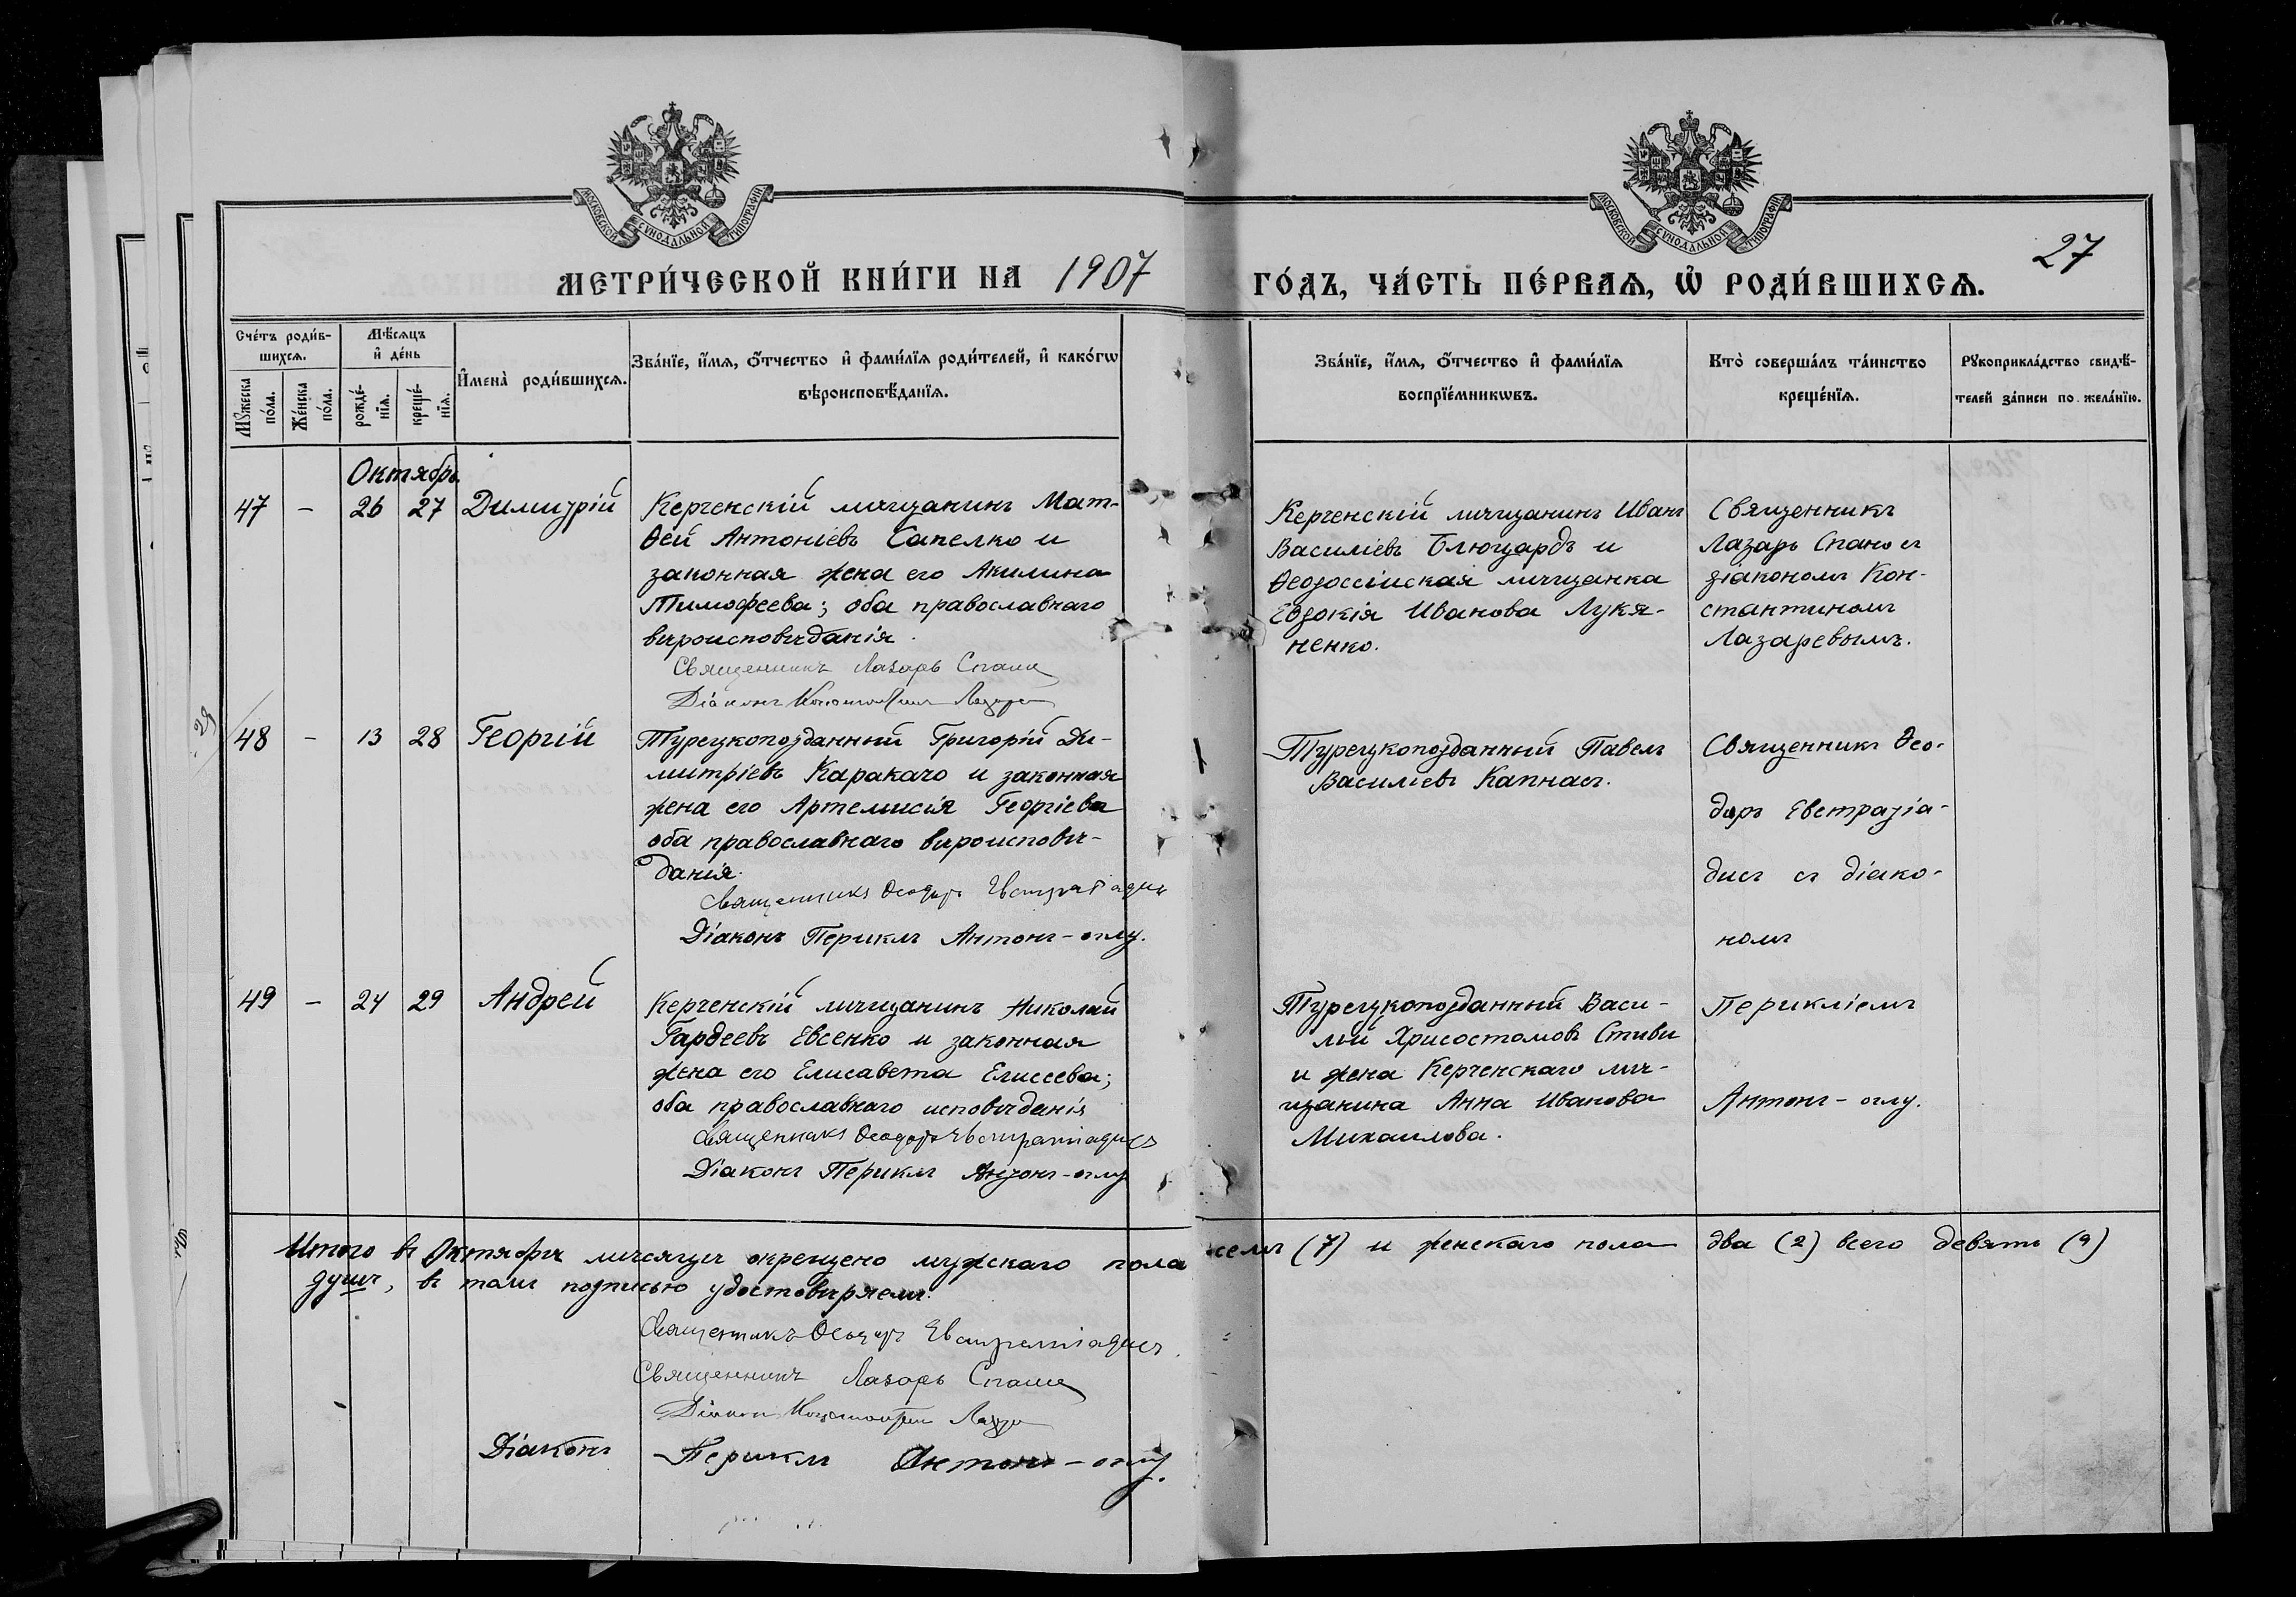 МОСКОВСКОЙ СѴНОДАЛЬНОЙ ТИПОГРАФІИ
МОСКОВСКОЙ СѴНОДАЛЬНОЙ ТИПОГРАФІИ
МЕТРИ́ЧЕСКОЙ КНИ́ГИ НА 1907
ГО́ДЪ, ЧА́СТЬ ПЕ́РВАѦ, Ѿ РОДИ́ВШИХСѦ.
27
Сче́тъ роди́в-
шихсѧ.
Мꙋ́жеска
по́ла.
Же́нска
по́ла.
Мѣ́сѧцъ
и҆ де́нь
рожде́-
нїѧ.
креще́-
нїѧ.
И҆мена̀ роди́вшихсѧ.
Зва́нїе, и҆́мѧ, ѻ҆́тчество и҆ фами́лїѧ роди́телей, и҆ како́гѡ
вѣроисповѣ́данїѧ.
Зва́нїе, и҆́мѧ, ѻ҆́тчество и҆ фами́лїѧ
воспрїе́мникѡвъ.
Кто̀ соверша́лъ та́инство
креще́нїѧ.
Рꙋкоприкла́дство свидѣ́-
телей за́писи по жела́нїю.
Октябрь
47 – 26 27 Димитрій
Керченскій мѣщанинъ Мат-
ѳей Антоніевъ Сапелко и
законная жена его Акилина
Тимофеева; оба православнаго
вѣроисповѣданія.
Священникъ Лазарь Спано
Діаконъ Константинъ Лазаревъ
Керченскій мѣщанинъ Иванъ
Василіевъ Блюшардъ и
Ѳеодоссійская мѣщанка
Евдокія Иванова Лукя-
ненко.
Священникъ
Лазарь Спано съ
діакономъ Кон-
стантиномъ
Лазаревымъ.
48 – 13 28 Георгій
Турецкоподданный Григорій Ди-
митріевъ Каракачо и законная
жена его Артемисія Георгіева
оба православнаго вѣроисповѣ-
данія.
Священникъ Ѳеодоръ Евстратіадисъ
Діаконъ Периклъ Антонъ-оглу.
Турецкоподданный Павелъ
Василіевъ Капнасъ.
Священникъ Ѳео-
доръ Евстратіа-
дисъ съ діако-
номъ
49 – 24 29 Андрей
Керченскій мѣщанинъ Николай
Гардеевъ Евсенко и законная
жена его Елисавета Елисеева;
оба православнаго исповѣданія
Священникъ Ѳеодоръ Евстратіадисъ
Діаконъ Периклъ Антонъ-оглу
Турецкоподданный Васи-
лій Хрисостомовъ Стиви
и жена Керченскаго мѣ-
щанина Анна Иванова
Михаилова.
Перикліемъ
Антонъ-оглу.
Итого въ Октябрѣ мѣсяцѣ окрещено мужскаго пола семь (7) и женскаго пола два (2) всего девять (9)
душъ, въ томъ подписью удостовѣряемъ.
Священникъ Ѳеодоръ Евстратіадисъ.
Священникъ Лазарь Спано
Діаконъ Константинъ Лазаревъ
Діаконъ Периклъ Антонъ-оглу.